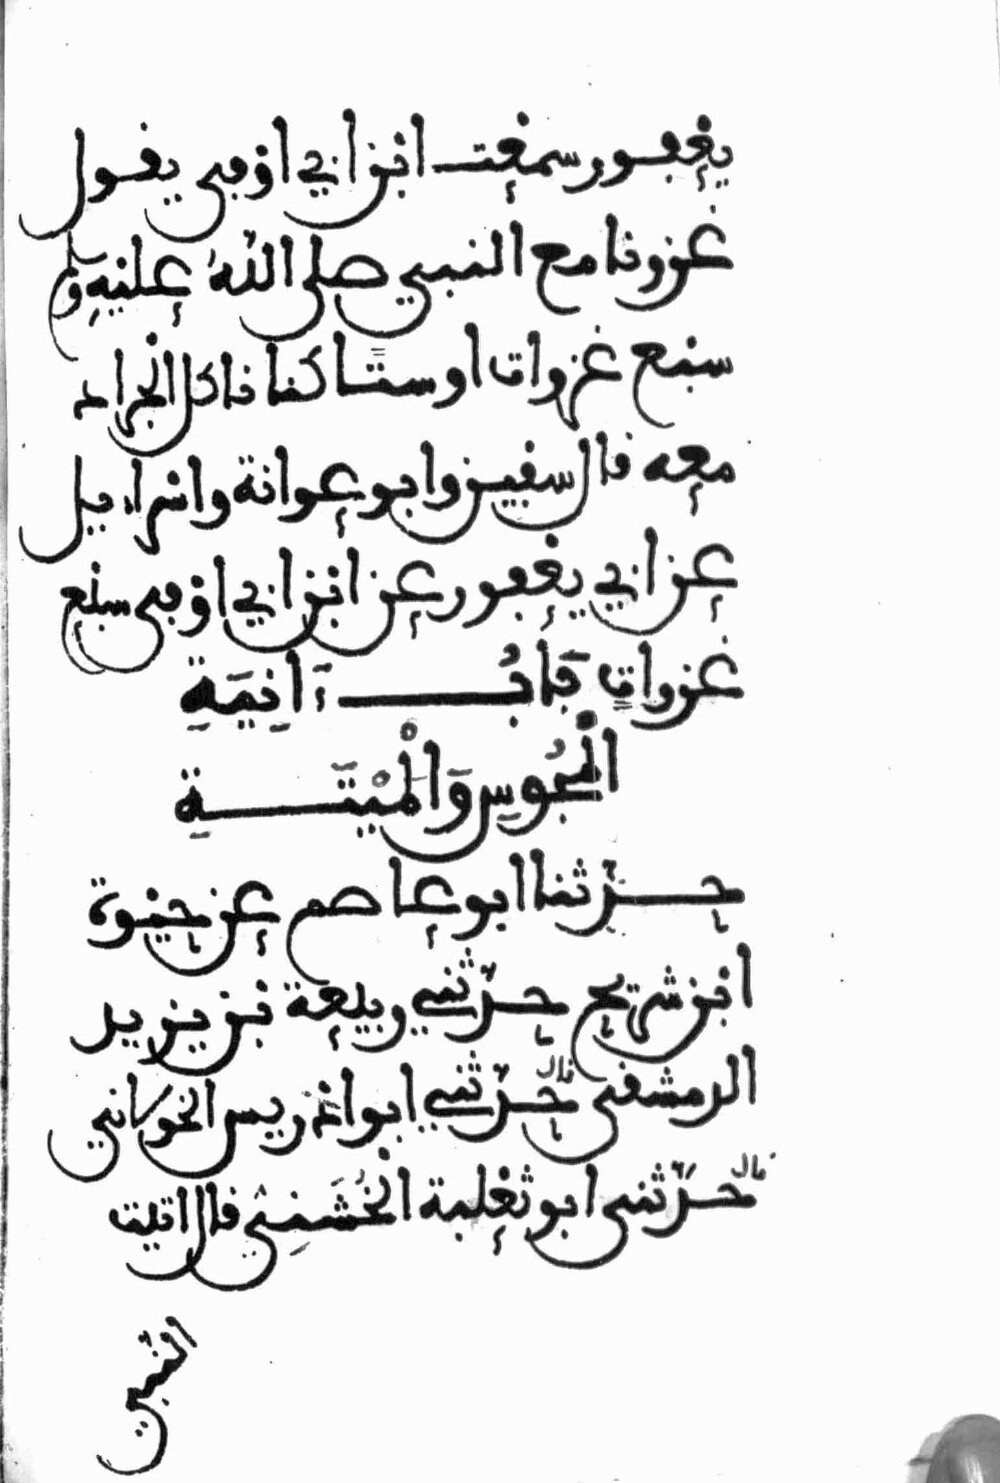 يعفور سمعت ابن ابي اوفى يقول
غزونا مع النبي صلى الله عليه وسلم
سبع غزوات او ستا كنا ناكل الجراد
معه قال سفين وابو عوانة واسراءيل
عن ابي يعفور عن ابن ابي اوفى سبع
غزوات بَابُ ءَانِيَةِ
الْمَجُوسِ وَالْمَيْتَةِ
حدثنا ابو عاصم عن حيوة
ابن شريح حدثني ربيعة بن يزيد
الدمشقي قال حدثني ابو ادريس الخولاني
قال حدثني ابو ثعلبة الخشني قال اتيت
النبي